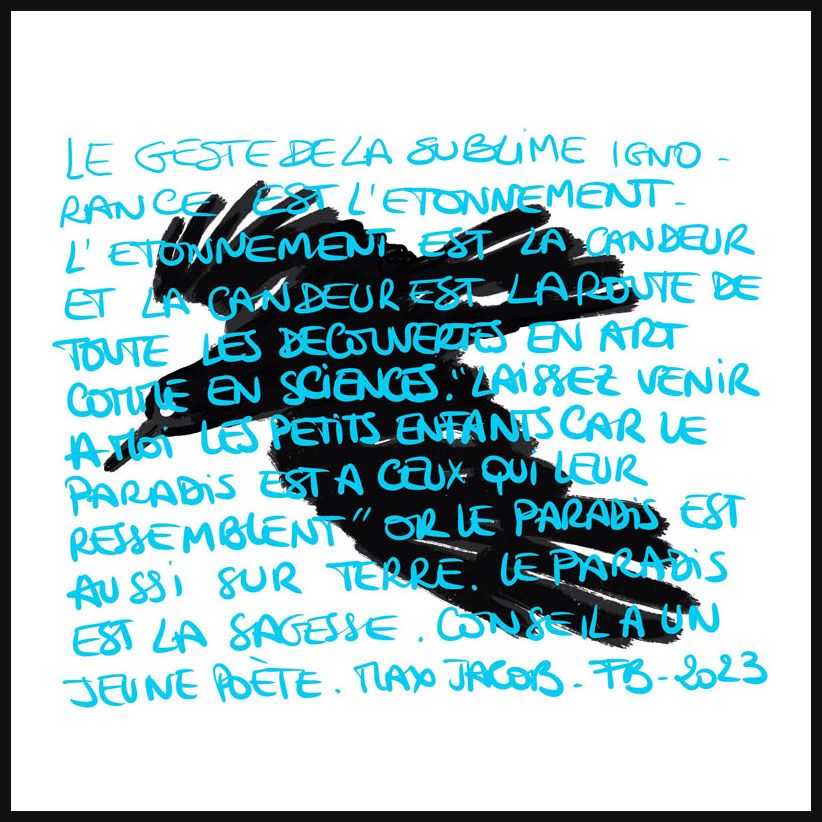 LE GESTE DE LA SUBLIME IGNO-
RANCE EST L'ETONNEMENT-
L'ETONNEMENT EST LA CANDEUR
ET LA CANDEUR EST LA ROUTE DE
TOUTE LES DECOUVERTES EN ART
COMME EN SCIENCES. "LAISSEZ VENIR
A MOI LES PETITS ENFANTS CAR LE
PARADIS EST A CEUX QUI LEUR
RESSEMBLENT" OR LE PARADIS EST
AUSSI SUR TERRE. LE PARADIS
EST LA SAGESSE. CONSEIL A UN
JEUNE POÈTE. MAX JACOB-FB-2023